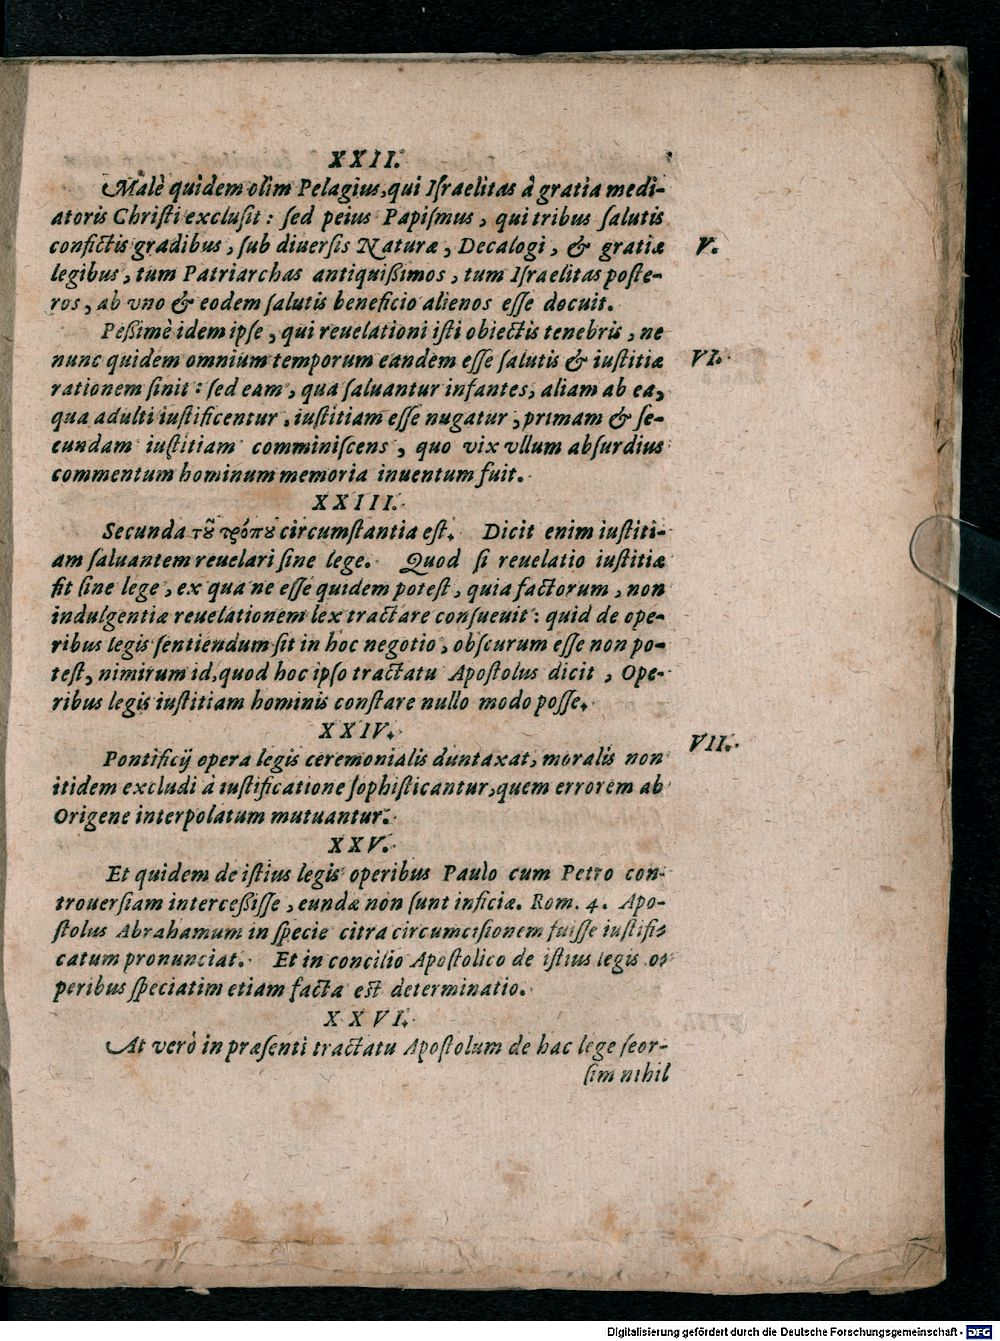 XXII.
Malè quidem olim Pelagius, qui Iſraelitas à gratia medi-
atoris Chriſti excluſit: ſed peius Papiſmus, qui tribus ſalutis
confictis gradibus, ſub diuerſis Naturæ, Decalogi, & gratiæ
V.
legibus, tum Patriarchas antiquißimos, tum Iſraelitas poſte-
ros, ab vno & eodem ſalutis beneficio alienos eſſe docuit.
Peßimè idem ipſe, qui reuelationi iſti obiectis tenebris, ne
nunc quidem omnium temporum eandem eſſe ſalutis & iuſtitiæ
VI.
rationem ſinit: ſed eam, qua ſaluantur infantes, aliam ab ea,
qua adulti iuſtificentur, iuſtitiam eſſe nugatur, primam & ſe-
cundam iuſtitiam comminiſcens, quo vix vllum abſurdius
commentum hominum memoria inuentum fuit.
XXIII.
Secunda τȣ̃ τρόπȣ circumſtantia eſt. Dicit enim iuſtiti-
am ſaluantem reuelari ſine lege. Quod ſi reuelatio iuſtitiæ
fit ſine lege, ex qua ne eſſe quidem poteſt, quia factorum, non
indulgentiæ reuelationem lex tractare conſueuit: quid de ope-
ribus legis ſentiendum ſit in hoc negotio, obſcurum eſſe non po-
teſt, nimirum id, quod hoc ipſo tractatu Apoſtolus dicit, Ope-
ribus legis iuſtitiam hominis conſtare nullo modo poſſe.
XXIV.
VII.
Pontificij opera legis ceremonialis duntaxat, moralis non
itidem excludi à iuſtificatione ſophiſticantur, quem errorem ab
Origene interpolatum mutuantur.
XXV.
Et quidem de iſtius legis operibus Paulo cum Petro con-
trouerſiam interceßiſſe, eundæ non ſunt inficiæ. Rom. 4. Apo-
ſtolus Abrahamum in ſpecie citra circumciſionem fuiſſe iuſtifi-
catum pronunciat. Et in concilio Apoſtolico de iſtius legis o-
peribus ſpeciatim etiam facta eſt determinatio.
XXVI.
At verò in præſenti tractatu Apoſtolum de hac lege ſeor-
ſim nihil
Digitalisierung gefördert durch die Deutsche Forschungsgemeinschaft - DFG